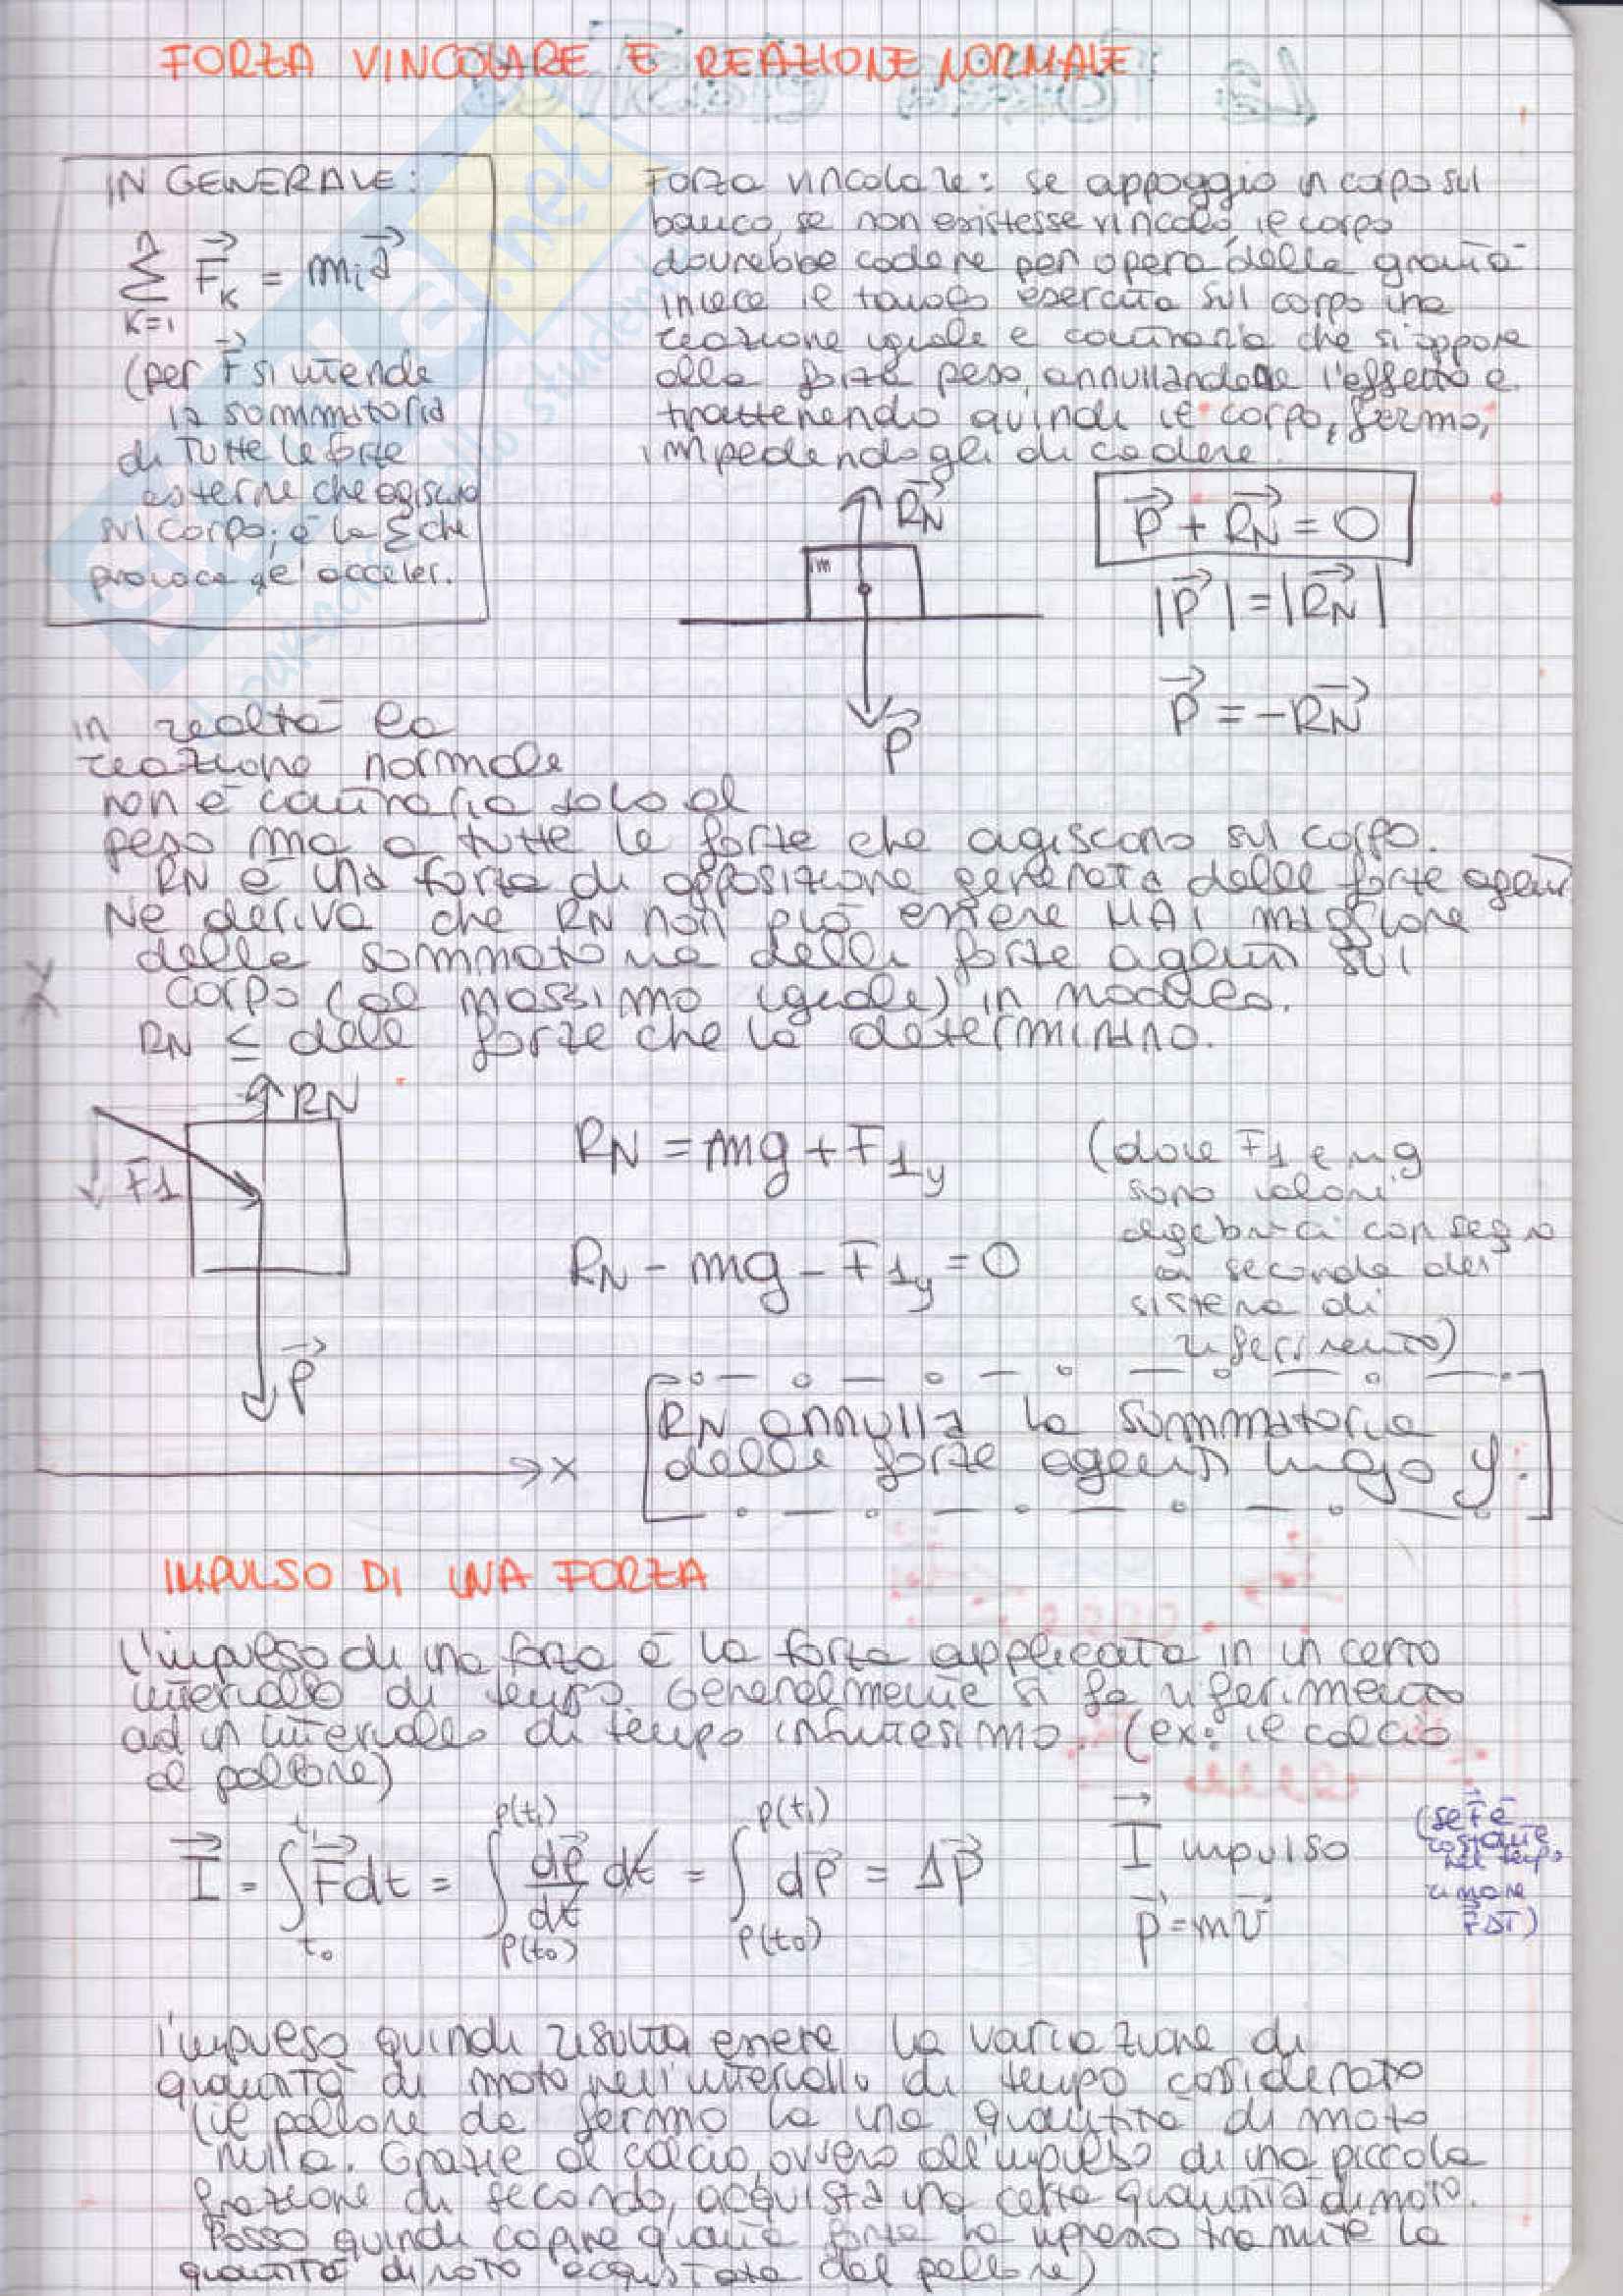 FORZA VINCOLARE E REAZIONE NORMALE:
IN GENERALE:
n
∑ F⃗K = mi a⃗
K=1
(per F⃗ si intende
la sommatoria
di tutte le forze
esterne che agiscono
sul corpo; è la Σ che
provoca gℓ' acceler.
Forza vincolare: se appoggio un corpo sul
banco, se non esistesse vincolo, il corpo
dovrebbe cadere per opera della gravità
invece il tavolo esercita sul corpo una
reazione uguale e contraria che si oppone
alla forza peso, annullandone l'effetto e
trattenendo quindi il corpo, fermo,
impedendogli di cadere.
R⃗N
m
P⃗
P⃗ + R⃗N = 0
|P⃗| = |R⃗N|
P⃗ = -R⃗N
in realtà la
reazione normale
non è contraria solo al
peso ma a tutte le forze che agiscono sul corpo.
RN è una forza di opposizione generata dalle forze agenti
Ne deriva che RN non può essere MAI maggiore
della sommatoria delle forze agenti sul
corpo (al massimo uguale) in modulo.
RN ≤ delle forze che la determinano.
Y
RN
F1
P⃗
x
RN = mg + F1y
RN - mg - F1y = 0
(dove F1 e mg
sono valori
algebrici con segno
a seconda del
sistema di
riferimento)
RN annulla la sommatoria
delle forze agenti lungo y.
IMPULSO DI UNA FORZA
L'impulso di una forza è la forza applicata in un certo
intervallo di tempo. Generalmente si fa riferimento
ad un intervallo di tempo infinitesimo. (ex: il calcio
al pallone)
I⃗ = ∫t0t1 F⃗dt = ∫p(t0)p(t1) dp⃗/dt dt = ∫p(t0)p(t1) dp⃗ = Δp⃗
I⃗ impulso
p⃗ = mv⃗
(se F⃗ è
costante
nel tempo
rimane
F⃗ΔT)
l'impulso quindi risulta essere la variazione di
quantità di moto nell'intervallo di tempo considerato
(il pallone da fermo ha una quantità di moto
nulla. Grazie al calcio, ovvero all'impulso di una piccola
frazione di secondo, acquista una certa quantità di moto.
Posso quindi capire quanta forza ha impresso tramite la
quantità di moto acquistata dal pallone)